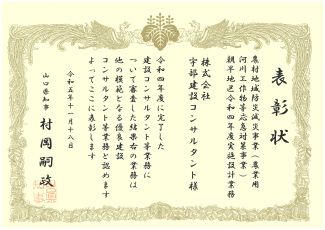 表彰状
農村地域防災減災事業（農業用
河川工作物等応急対策事業）
朝半地区令和四年度実施設計業務
株式会社
宇部建設コンサルタント様
令和四年度に完了した
建設コンサルタント等業務に
ついて審査した結果右の業務は
他の模範となる優良建設
コンサルタント等業務と認めます
よってここに表彰します
令和五年十一月十八日
山口県知事 村岡嗣政